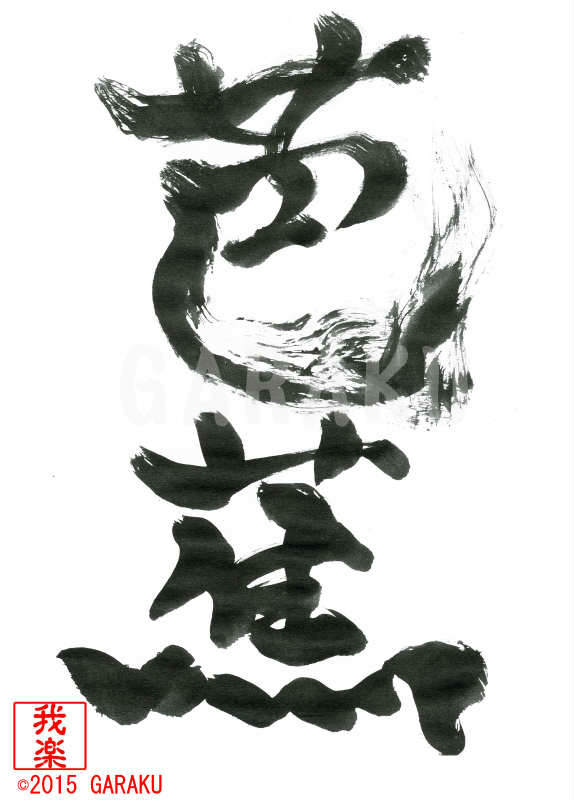 芭
蕉
GARAKU
我
楽
©2015 GARAKU